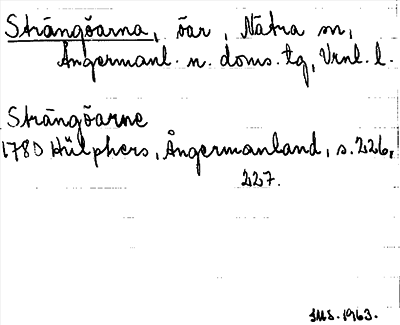 Strängöarna, öar, Nätra sn,
Ångermanl. n. doms. tg, Vrnl. l.
Strängöarne
1780 Hülphers, Ångermanland, s. 226,
227.
JMS. 1963.